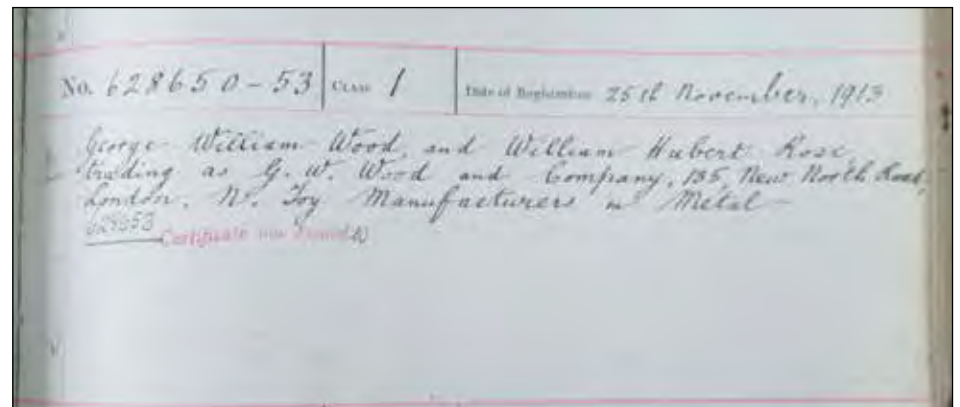 No. 628650-53 CLASS 1 Date of Registration 25th November, 1913
George William Wood, and William Hubert Rose,
trading as G. W. Wood and Company, 135, New North Road,
London, N. Toy Manufacturers in Metal
628653 Certificate